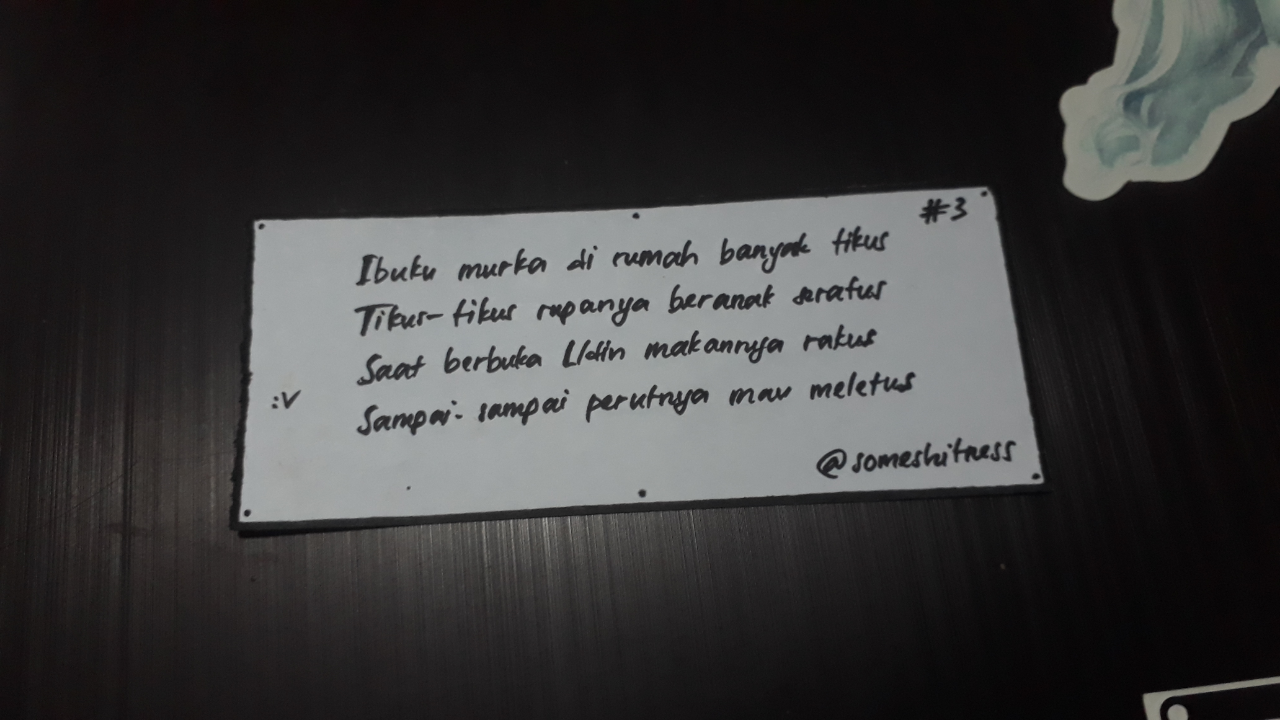 #3
Ibuku murka di rumah banyak tikus
Tikus-tikus rupanya beranak seratus
Saat berbuka Udin makannya rakus
:V
Sampai-sampai perutnya mau meletus
@someshitness